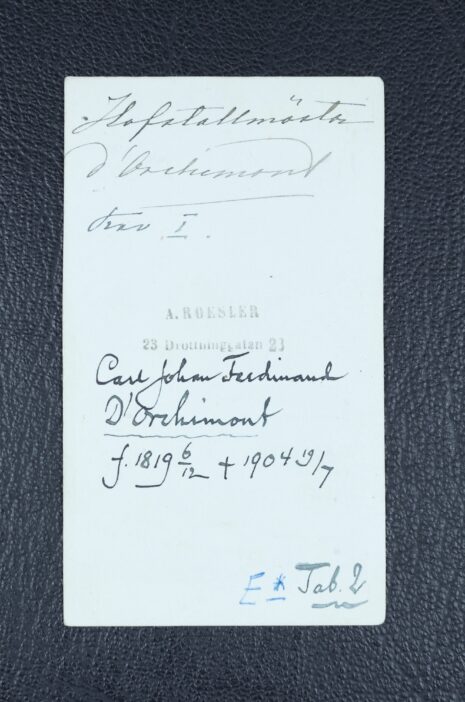 Hofstallmästar
d'Orchimont
I.
A. ROESLER
23 Drottninggatan 23
Carl Johan Ferdinand
D'Orchimont
f. 1819 6/12 † 1904 19/7
E * Tab. 2